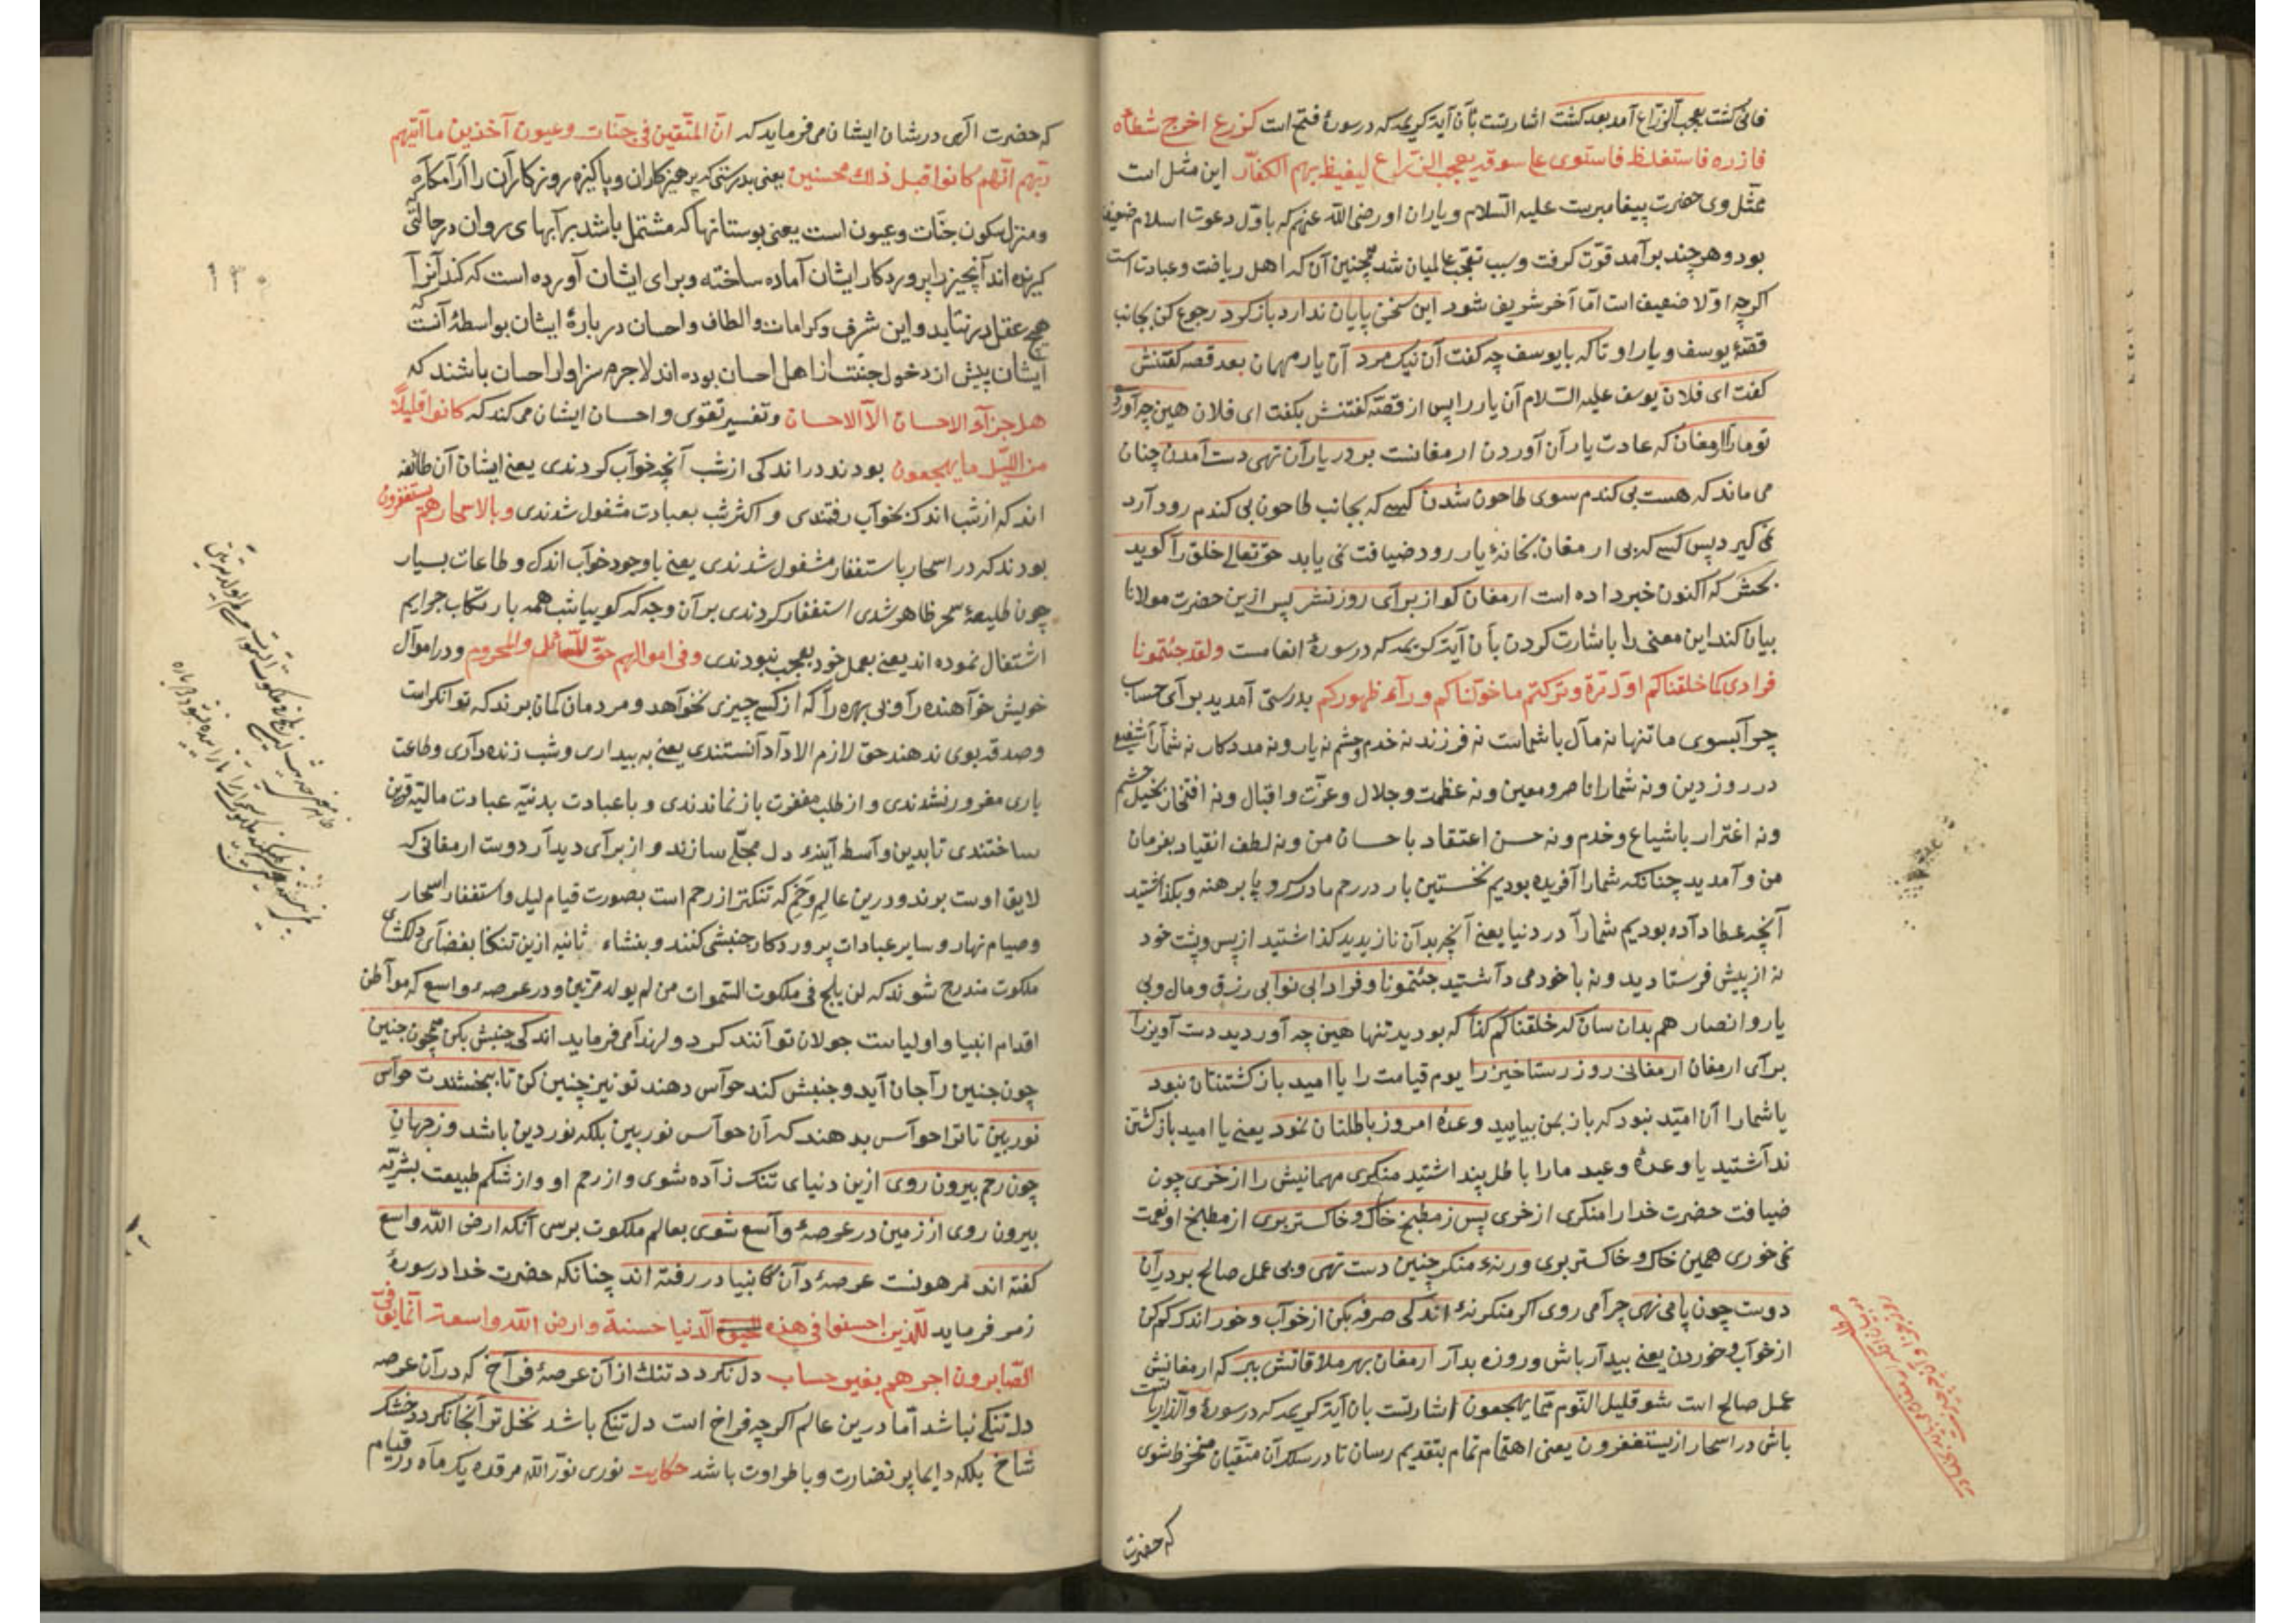 فانی گشت یعجب الزراع آمد بعد کشت اشارتست بآن آیهٔ کریمه که در سورهٔ فتح است کزرع اخرج شطأه
فآزره فاستغلظ فاستوی علی سوقه یعجب الزراع لیغیظ بهم الکفار این مثل است
مثل وی حضرت پیغامبرست علیه السلام و یاران او رضی الله عنهم که باول دعوت اسلام ضعیف
بود و هر چند برآمد قوت گرفت و سبب تعجب عالمیان شد همچنین آن که اهل ریاضت و عبادت است
اگرچه اولا ضعیف است اما آخر شریف شود این سخن پایان ندارد باز گرد رجوع کن بجانب
قصهٔ یوسف و یار او تا که با یوسف چه گفت آن نیک مرد آن یار مهمان بعد قصه گفتنش
گفت ای فلان یوسف علیه السلام آن یار را پس از قصه گفتنش بگفت ای فلان هین چه آوردی
تو ما را ارمغان که عادت یاران آوردن ارمغانست بر در یاران تهی دست آمدن چنان
می ماند که هست بی گندم سوی طاحون شدن کسی که بجانب طاحون بی گندم رود آرد
نمی گیرد پس کسی که بی ارمغان بخانهٔ یار رود ضیافت نمی یابد حق تعالی خلق را گوید
بحشر که اکنون خبر داده است ارمغان کو از برای روز نشر پس ازین حضرت مولانا
بیان کند این معنی را باشارت کردن بآن آیهٔ کریمه که در سورهٔ انعامست ولقد جئتمونا
فرادی کما خلقناکم اول مرة وترکتم ما خولناکم ورآء ظهورکم بدرستی آمدید برای حساب
چرا بسوی ما تنها نه مال با شماست نه فرزند نه خدم و حشم نه یار و نه مددکار نه شما را شفیع
در روز دین و نه شما را ناصر و معین و نه عظمت و جلال و عزت و اقبال و نه افتخار بخیل و حشم
و نه اغترار باشیاع و خدم و نه حسن اعتقاد باحسان من و نه لطف انقیاد بفرمان
من و آمدید چنانکه شما را آفریده بودیم نخستین بار در رحم مادر سر و پا برهنه و بگذاشتید
آنچه عطا داده بودیم شما را در دنیا یعنی آنچه بدان نازیدید گذاشتید از پس پشت خود
نه از پیش فرستادید و نه با خود می داشتید جئتمونا و فرادا بی نوا بی رزق و مال و بی
یار و انصار هم بدان سان که خلقناکم کذا که بودید تنها هین چه آوردید دست آویز را
برای ارمغان ارمغانی روز رستاخیز را یوم قیامت را یا امید باز گشتنتان نبود
یا شما را آن امید نبود که باز بمن بیایید وعدهٔ امروز باطلتان نمود یعنی یا امید باز گشتن
نداشتید یا وعده وعید ما را باطل پنداشتید منکری مهمانیش را از خری چون
ضیافت حضرت خدا را منکری از خری پس ز مطبخ خاک و خاکستر بری از مطبخ او نعمت
نمی خوری همین خاک و خاکستر بری ور نهٔ منکر چنین دست تهی و بی عمل صالح بر در آن
دوست چون پا می نهی چرا می روی اگر منکر نهٔ اندکی صرفه بکن از خواب و خور اندک کم کن
از خواب و خوردن یعنی بیدار باش و روزه بدار ارمغان بهر ملاقاتش ببر که ارمغانیش
عمل صالح است شو قلیل النوم مما یهجعون اشارتست بآن آیهٔ کریمه که در سورهٔ والذاریاتست
باش در اسحار از یستغفرون یعنی اهتمام تمام بتقدیم رسان تا در سلک آن متقیان منخرط شوی
که حضرت
که حضرت الهی در شان ایشان می فرماید که ان المتقین فی جنات وعیون آخذین ما آتیهم
ربهم انهم کانوا قبل ذلک محسنین یعنی بدرستی که پرهیزکاران و پاکیزه روزکاران را آرامگاه
و منزل سکون جنات و عیون است یعنی بوستانها که مشتمل باشد بر آبهای روان در حالتی
گیرنده اند آنچیز را پروردکار ایشان آماده ساخته و برای ایشان آورده است که کند آنرا
هیچ عقل در نیابد و این شرف و کرامات و الطاف و احسان در بارهٔ ایشان بواسطهٔ آنست که
ایشان پیش از دخول جنت از اهل احسان بوده اند لاجرم سزاوار احسان باشند که
هل جزآء الاحسان الا الاحسان و تفسیر تقوی و احسان ایشان می کند که کانوا قلیلاً
من اللیل ما یهجعون بودند در اندکی از شب آنچه خواب کردندی یعنی ایشان آن طائفه
اند که از شب اندک بخواب رفتندی و اکثر شب بعبادت مشغول شدندی وبالاسحار هم یستغفرون
بودند که در اسحار باستغفار مشغول شدندی یعنی با وجود خواب اندک و طاعات بسیار
چون طلیعهٔ سحر ظاهر شدی استغفار کردندی بر آن وجه که گوییا شب همه بارتکاب جرایم
اشتغال نموده اند یعنی بعمل خود بعجب نبودندی وفی اموالهم حق للسائل والمحروم و در اموال
خویش خواهنده را و بی بهره را که از کسی چیزی نخواهد و مردمان گمان برند که توانگراست
و صدقه بوی ندهند حق لازم الادا دانستندی یعنی به بیداری و شب زنده داری و طاعت
باری مغرور نشدندی و از طلب مغفرت باز نماندندی و با عبادت بدنیه عبادت مالیه قرین
ساختندی تا بدین واسطه آینهٔ دل مجلی سازند و از برای دیدار دوست ارمغانی که
لایق اوست برند و درین عالم وخم که تنگتر از رحم است بصورت قیام لیل و استغفار اسحار
و صیام نهار و سایر عبادات پروردکار جنبشی کنند و بنشاء ثانیه ازین تنگنا بفضای دلگشای
ملکوت مندرج شوند که لن یلج فی ملکوت السموات من لم یولد مرتین و در عرصهٔ واسع که مواطن
اقدام انبیا و اولیاست جولان توانند کرد و لهذا می فرماید اندکی جنبش بکن همچون جنین
چون جنین را جان آید و جنبش کند حواس دهند تو نیز چنین کن تا ببخشندت حواس
نوربین تا ترا حواس بدهند که آن حواس نوربین بلکه نور دین باشد وز جهان
چون رحم بیرون روی ازین دنیای تنک زاده شوی و از رحم او و از شکم طبیعت بشریه
بیرون روی از زمین در عرصهٔ واسع شوی بعالم ملکوت برسی آنکه ارض الله واسع
گفته اند مرهونست عرصهٔ دان کانبیا در رفته اند چنانکه حضرت خدا در سورهٔ
زمر فرماید للذین احسنوا فی هذه الدنیا حسنة وارض الله واسعة انما یوفی
الصابرون اجرهم بغیر حساب دل نگردد تنک از آن عرصهٔ فراخ که در آن عرصه
دل تنگی نباشد اما درین عالم اگرچه فراخ است دل تنگی باشد نخل تر آنجا نگردد خشک
شاخ بلکه دایما پر نضارت و با طراوت باشد حکایت نوری نور الله مرقده یک ماه در قیام
۱۳۰